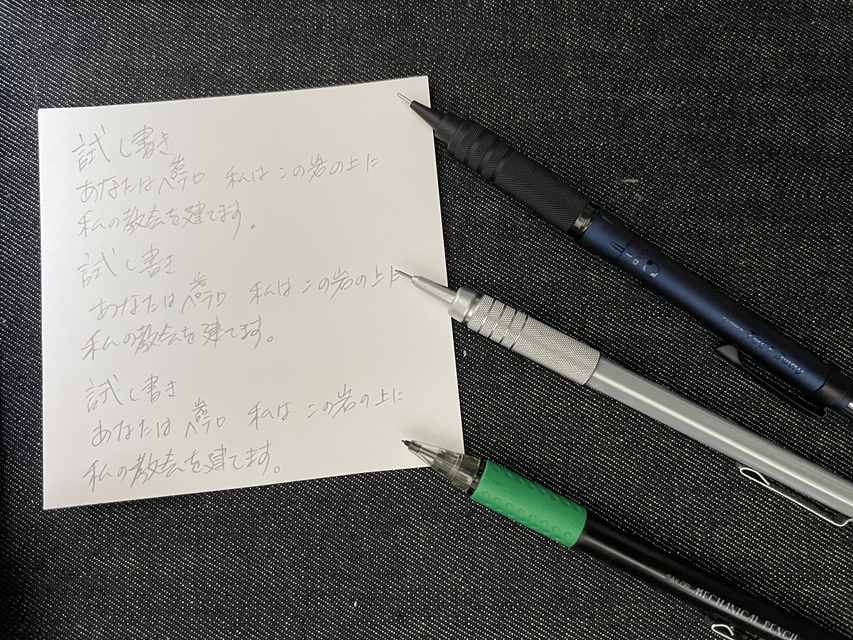 試し書き
あなたはペテロ 私はこの岩の上に
私の教会を建てます。
試し書き
あなたはペテロ 私はこの岩の上に
私の教会を建てます。
試し書き
あなたはペテロ 私はこの岩の上に
私の教会を建てます。
MECHANICAL PENCIL